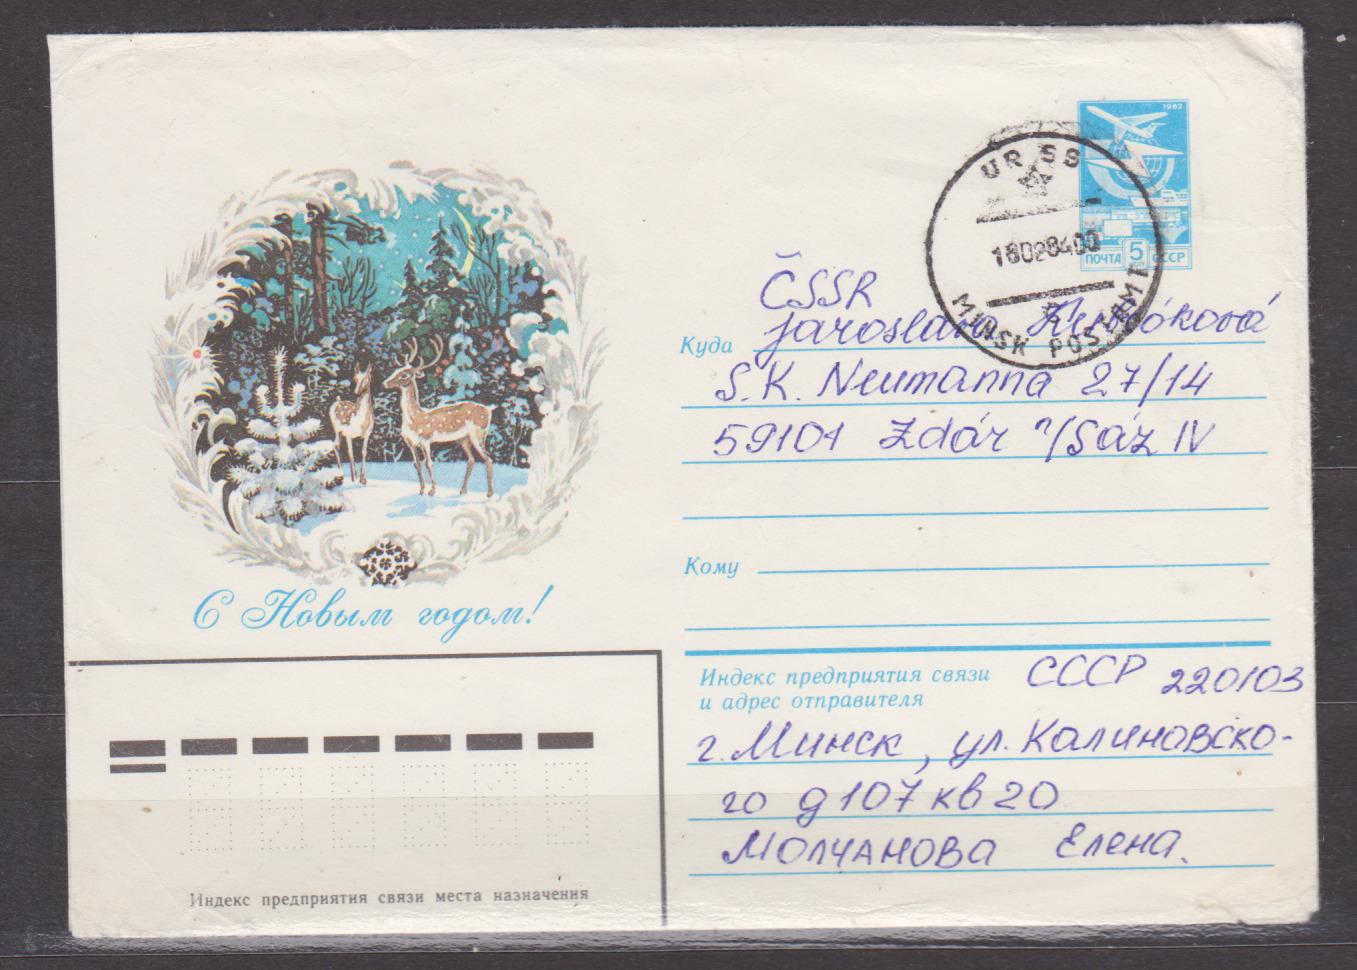 1982
ПОЧТА 5 СССР
URSS
18028400
MINSK POSTAMT
ČSSR
Куда Jaroslava
S. K. Neumanna 27/14
59101 Zdár n/Sáz IV
Кому
С Новым годом!
Индекс предприятия связи
и адрес отправителя
СССР 220103
г. Минск, ул. Калиновско-
го д 107 кв 20
Молчанова Елена.
Индекс предприятия связи места назначения